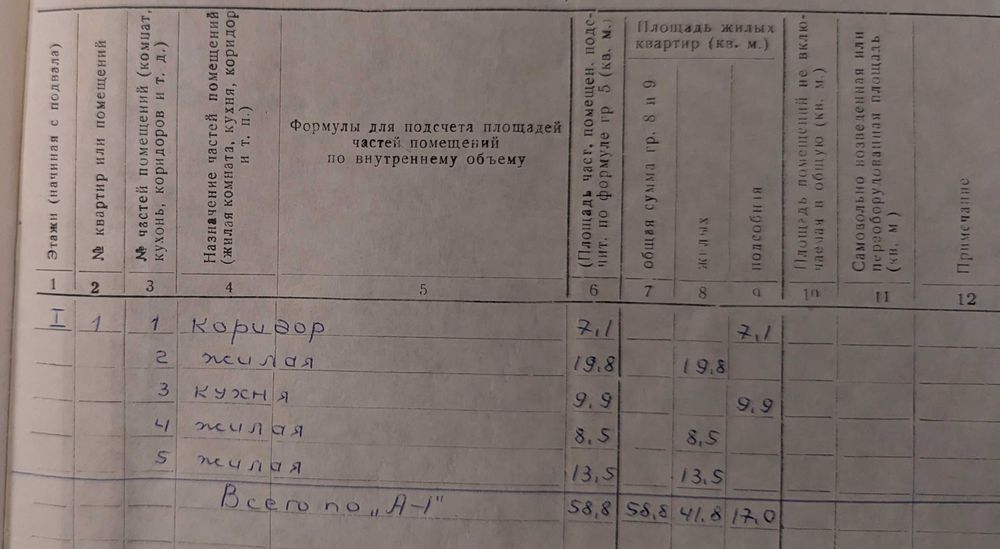 Этажи (начиная с подвала)
№ квартир или помещений
№ частей помещений (комнат,
кухонь, коридоров и т. д.)
Назначение частей помещений
(жилая комната, кухня, коридор
и т. п.)
Формулы для подсчета площадей
частей помещений
по внутреннему объему
(Площадь част. помещен. подс-
чит. по формуле гр 5 (кв. м.)
Площадь жилых
квартир (кв. м.)
общая сумма гр. 8 и 9
жилых
подсобния
Площадь помещений не вклю-
чаемая в общую (кв. м.)
Самовольно возведенная или
переоборудованная площадь
(кв. м)
Примечание
1 2 3 4 5 6 7 8 9 10 11 12
I 1 1 коридор 7,1 7,1
2 жилая 19.8 19.8
3 кухня 9,9 9,9
4 жилая 8,5 8,5
5 жилая 13,5 13,5
Всего по „А-1" 58,8 58,8 41.8 17,0